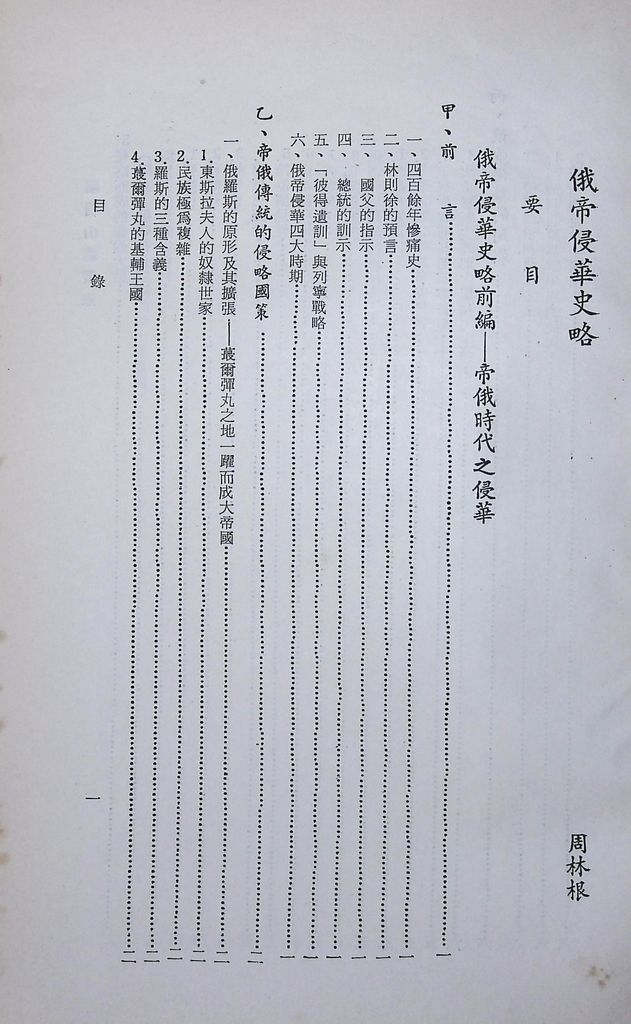 俄帝侵華史略
周林根
要目
俄帝侵華史略前編——帝俄時代之侵華
甲、前言……一
一、四百餘年慘痛史……一
二、林則徐的預言……一
三、國父的指示……一
四、總統的訓示……一
五、「彼得遺訓」與列寧戰略……一
六、俄帝侵華四大時期……一
乙、帝俄傳統的侵略國策……二
一、俄羅斯的原形及其擴張——蕞爾彈丸之地一躍而成大帝國……二
1.東斯拉夫人的奴隸世家……二
2.民族極爲複雜……二
3.羅斯的三種含義……二
4.蕞爾彈丸的基輔王國……二
目錄
一